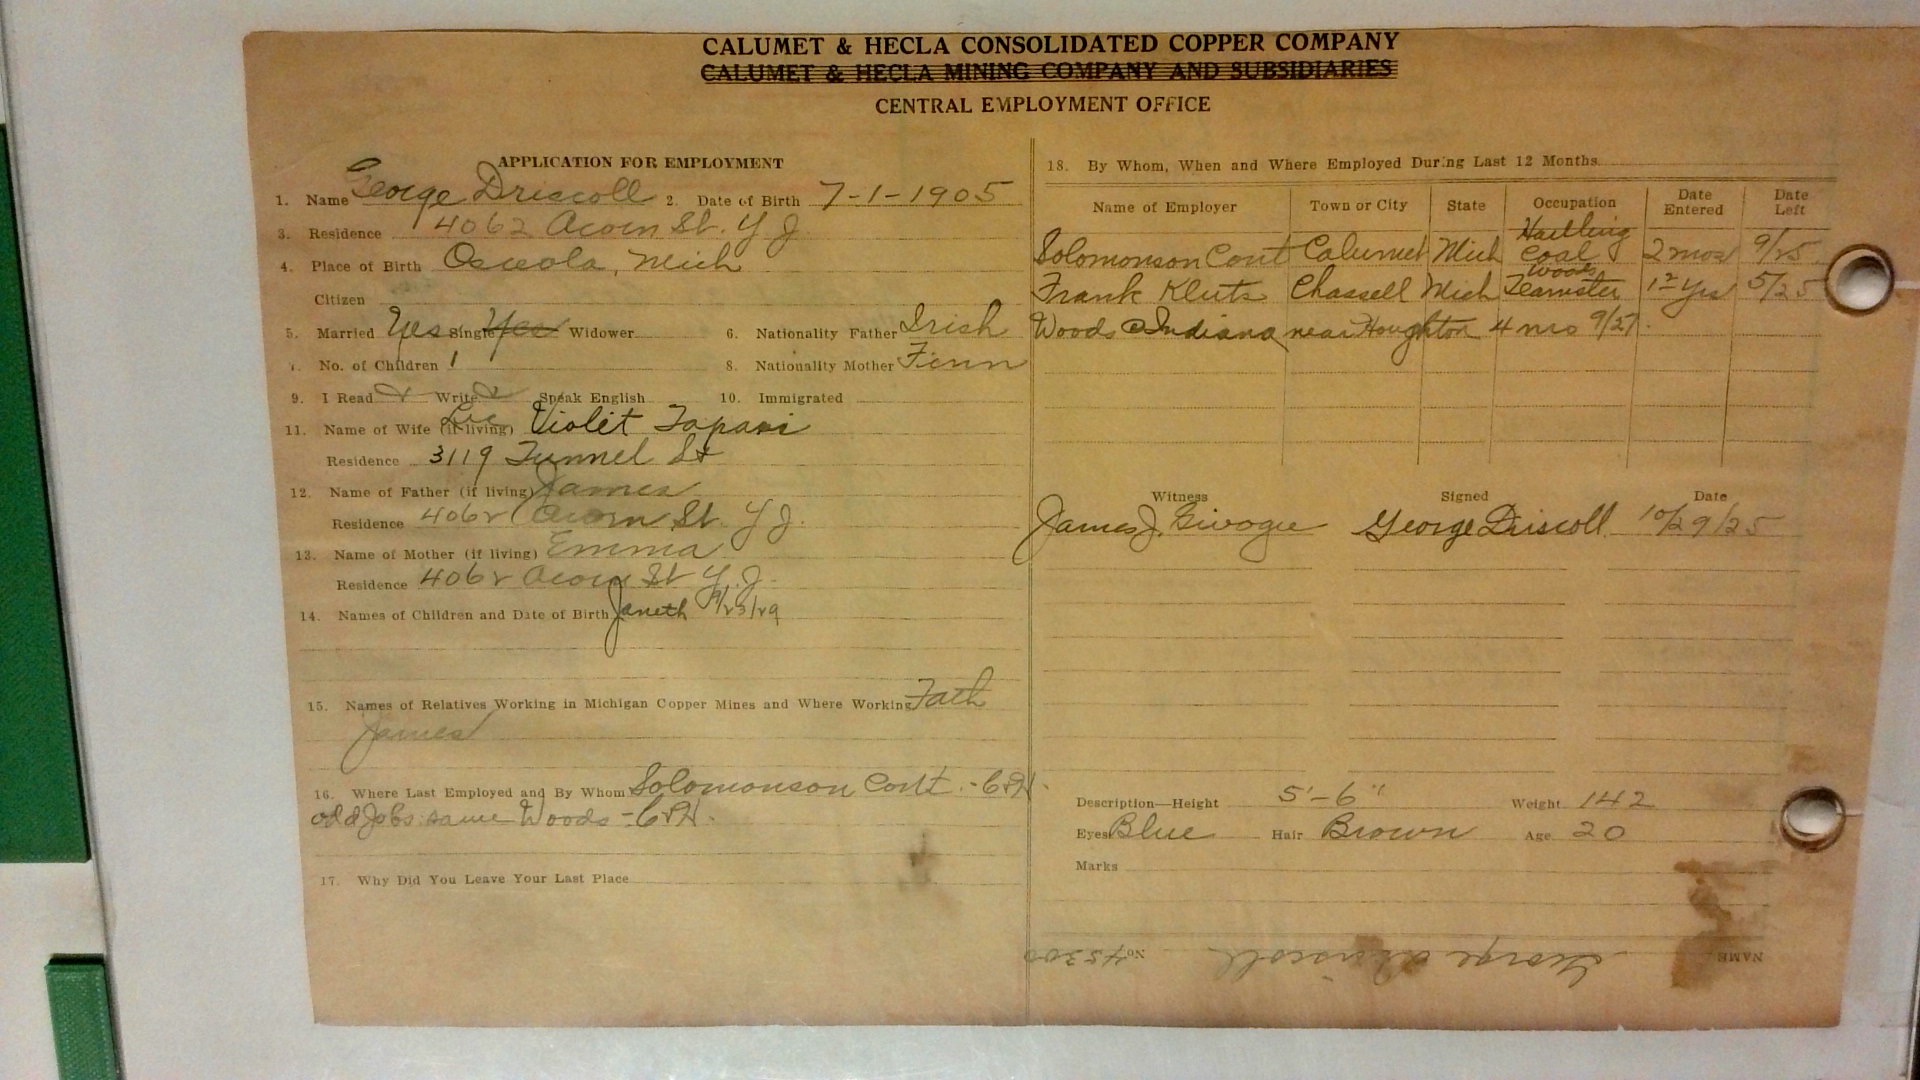 CALUMET & HECLA CONSOLIDATED COPPER COMPANY
CALUMET & HECLA MINING COMPANY AND SUBSIDIARIES
CENTRAL EMPLOYMENT OFFICE
APPLICATION FOR EMPLOYMENT
1. Name George Driscoll 2. Date of Birth 7-1-1905
3. Residence 4062 Acorn St. Y J
4. Place of Birth Osceola, Mich
Citizen
5. Married Yes Single Yes Widower 6. Nationality Father Irish
7. No. of Children 1 8. Nationality Mother Finn
9. I Read Write Speak English 10. Immigrated
11. Name of Wife (if living) Violet
Residence 3119 Tunnel St
12. Name of Father (if living) James
Residence 4062 Acorn St. Y J.
13. Name of Mother (if living) Emma
Residence 4062 Acorn St Y.J.
14. Names of Children and Date of Birth Janeth /23/29
15. Names of Relatives Working in Michigan Copper Mines and Where Working Fath
James
16. Where Last Employed and By Whom Solomonson Cont. - C&H.
odd Jobs same Woods - C&H.
17. Why Did You Leave Your Last Place
18. By Whom, When and Where Employed During Last 12 Months
Name of Employer Town or City State Occupation Date Entered Date Left
Solomonson Cont Calumet Mich Haulling Coal 2 mos 9/25
Frank Kluts Chassell Mich Woods Teamster 1 1/2 Yrs 5/25
Woods @ Indiana near Houghton 4 mo 9/27.
Witness Signed Date
James J. George Driscoll 10/29/25
Description—Height 5'-6" Weight 142
Eyes Blue Hair Brown Age 20
Marks
NAME George Driscoll No. 45300